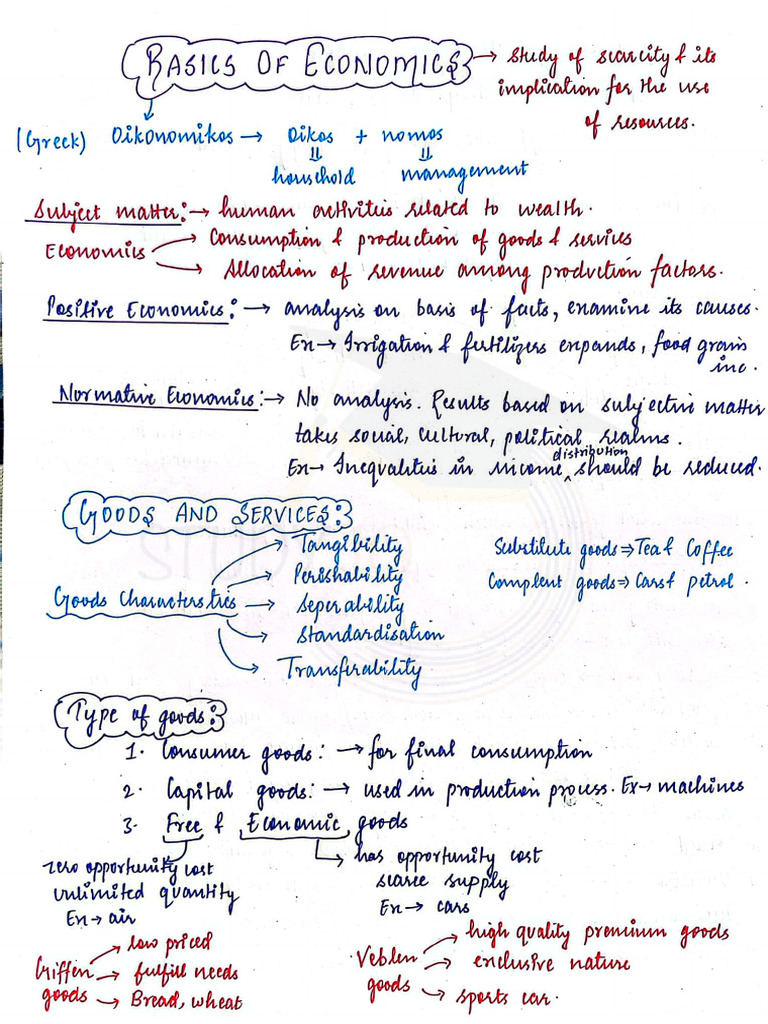 BASICS OF ECONOMICS → study of scarcity & its
implication for the use
of resources.
(Greek) Oikonomikos → Oikos + nomos
household management
Subject matter:→ human activities related to wealth.
Economics → Consumption & production of goods & services
→ Allocation of revenue among production factors.
Positive Economics:→ analysis on basis of facts, examine its causes.
Ex→ Irrigation & fertilizers expands, food grain
inc.
Normative Economics:→ No analysis. Results based on subjective matter
takes social, cultural, political realms.
Ex→ Inequalities in income distribution should be reduced.
GOODS AND SERVICES:
Goods Characterstics → Tangibility
→ Perishability
→ Seperability
→ Standardisation
→ Transferability
Substitute goods ⇒ Tea & Coffee
Complent goods ⇒ Cars & petrol.
Type of goods:
1. Consumer goods: → for final consumption
2. Capital goods: → used in production process. Ex→ machines
3. Free & Economic goods
zero opportunity cost
unlimited quantity
Ex→ air
has opportunity cost
scarce supply
Ex→ cars
Giffen goods → low priced
→ fulfill needs
→ Bread, wheat
Veblen goods → high quality premium goods
→ exclusive nature
→ sports car.